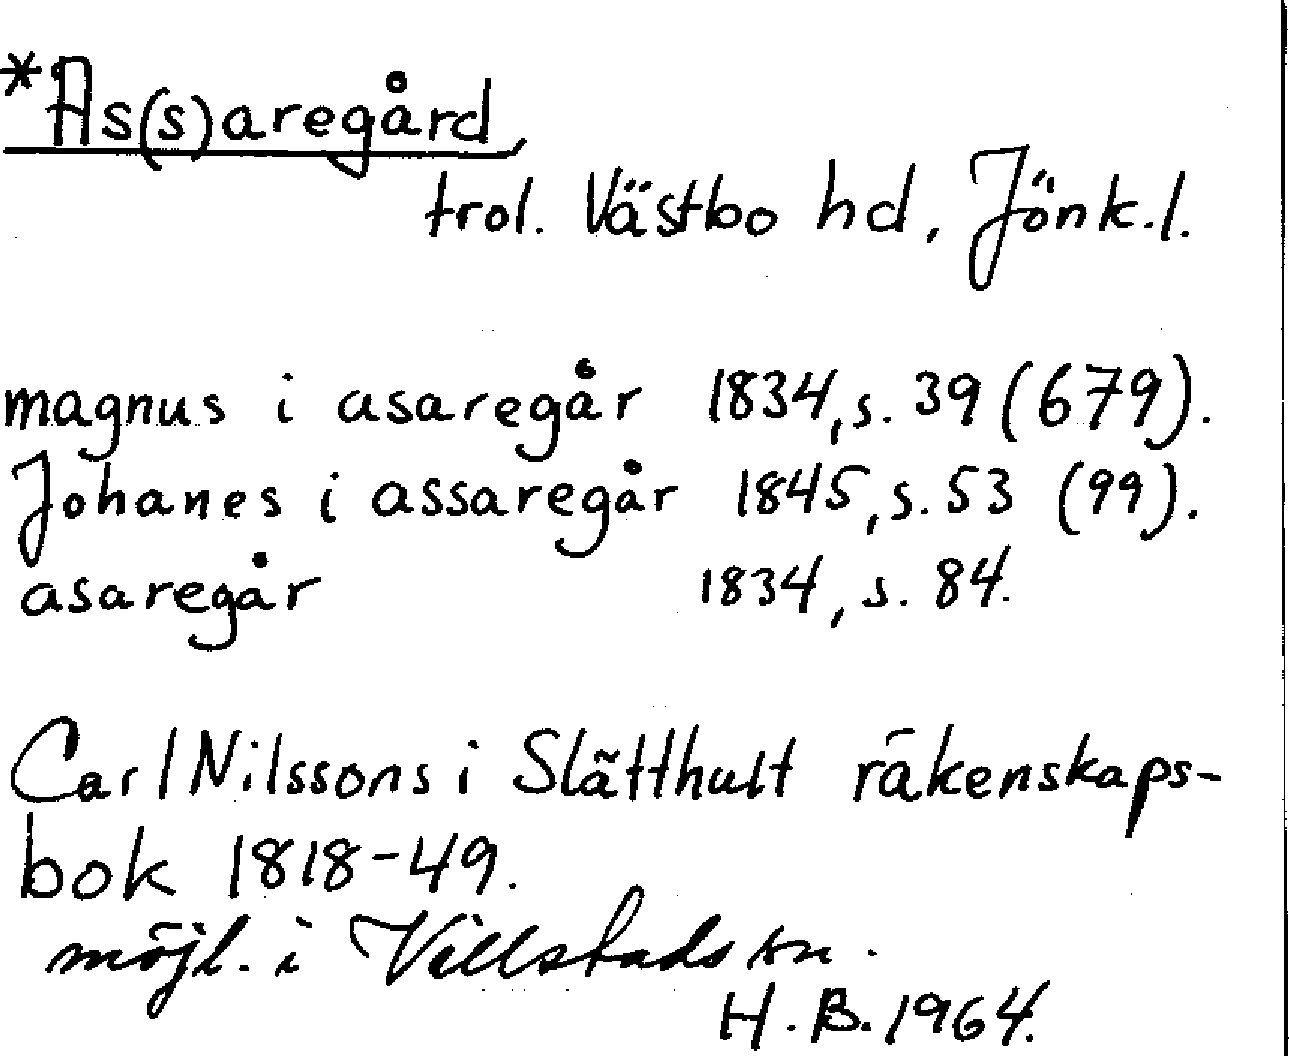 *As(s)aregård,
trol. Västbo hd, Jönk.l.
magnus i asaregår 1834, s. 39 (679).
Johanes i assaregår 1845, s. 53 (99).
asaregår 1834, s. 84.
Carl Nilssons i Slätthult räkenskaps-
bok 1818-49.
möjl. i Villstads sn.
H.B. 1964.